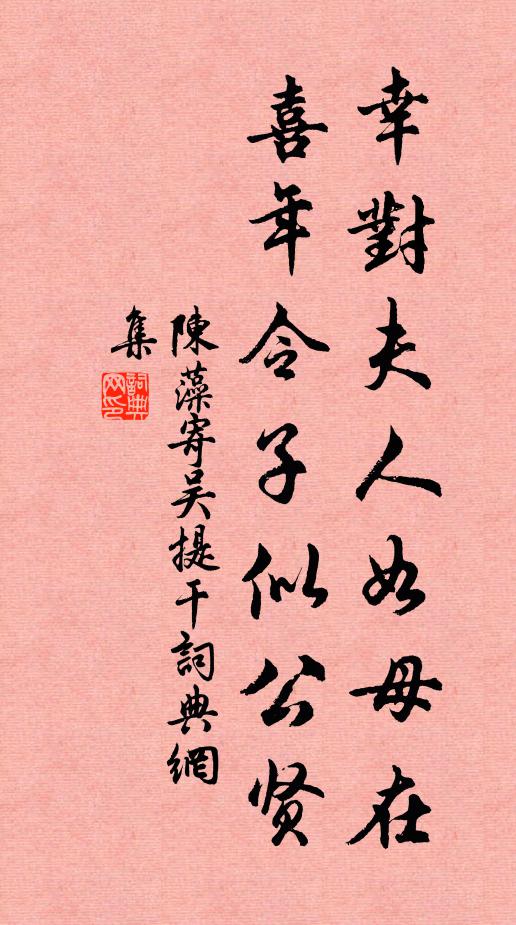 幸對夫人如母在
喜年令子似公贤
陳藻寄吴提干詞典網
集
詞典
网印